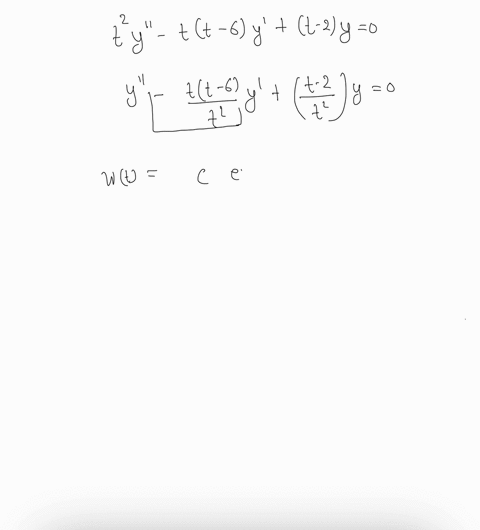 t²y'' - t(t-6)y' + (t-2)y=0
y'' - t(t-6)/t² y' + (t-2/t²)y = 0
W(t) = c e